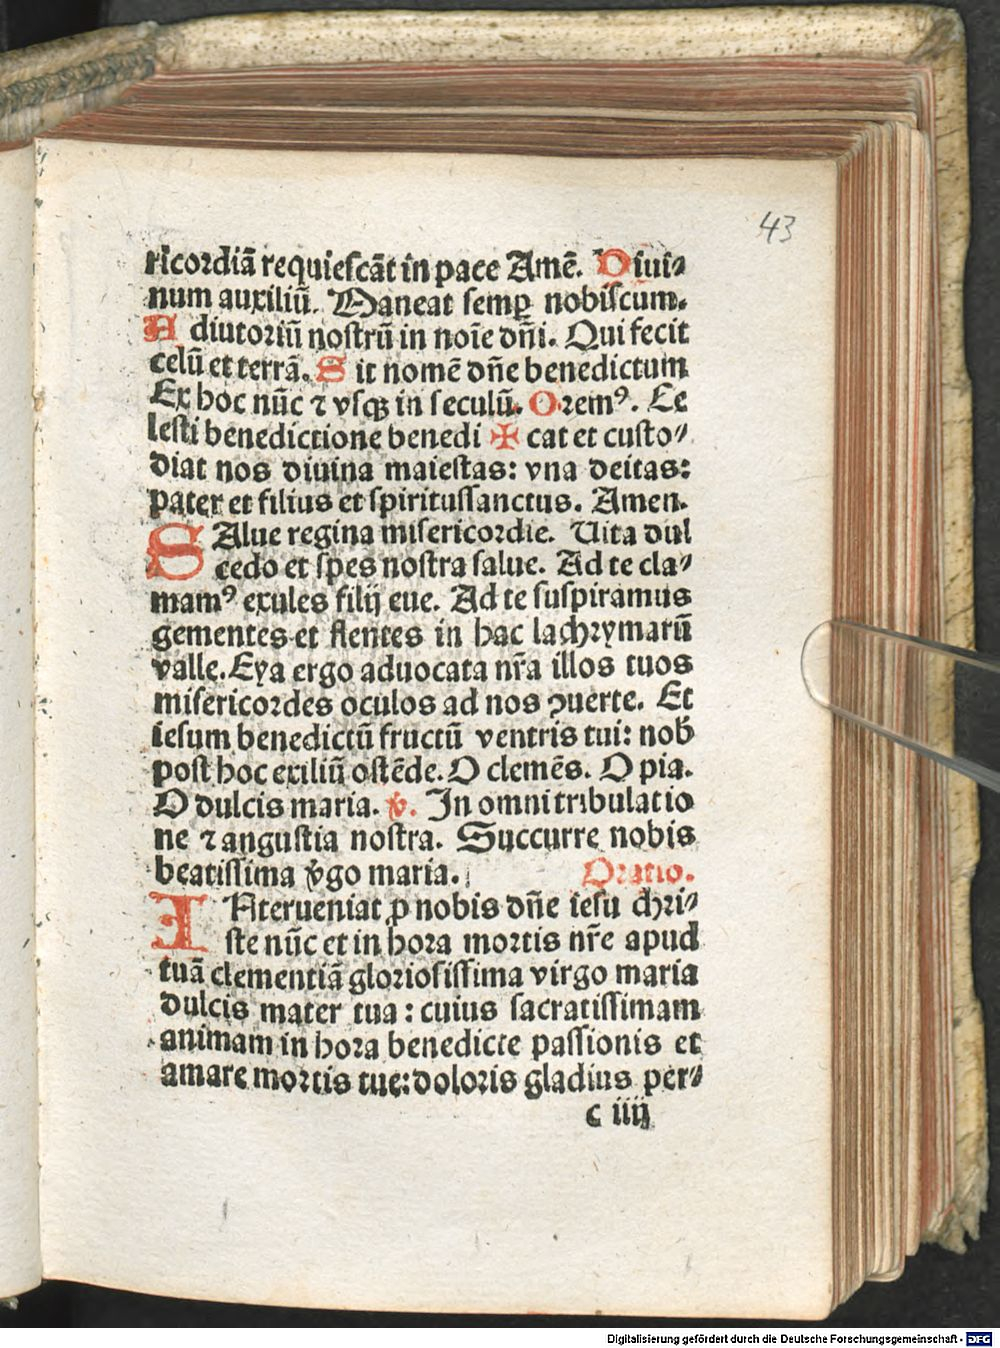 43
ricordiā requiescāt in pace Amē. Diui⸗
num auxiliū. Maneat semꝑ nobiscum.
Adiutoriū nostrū in noīe dn̄i. Qui fecit
celū et terrā. Sit nomē dn̄e benedictum
Ex hoc nūc ⁊ vsqꝫ in seculū. Oremꝰ. Ce
lesti benedictione benedi ✠ cat et custo⸗
diat nos diuina maiestas: vna deitas:
pater et filius et spiritussanctus. Amen.
SAlue regina misericordie. Uita dul
cedo et spes nostra salue. Ad te cla⸗
mamꝰ exules filij eue. Ad te suspiramus
gementes et flentes in hac lachrymarū
valle. Eya ergo aduocata nr̄a illos tuos
misericordes oculos ad nos ꝯuerte. Et
iesum benedictū fructū ventris tui: nob̄
post hoc exiliū ostēde. O clemēs. O pia.
O dulcis maria. ℣. In omni tribulatio
ne ⁊ angustia nostra. Succurre nobis
beatissima v̄go maria. Oratio.
INterueniat ꝓ nobis dn̄e iesu chri⸗
ste nūc et in hora mortis nr̄e apud
tuā clementiā gloriosissima virgo maria
dulcis mater tua: cuius sacratissimam
animam in hora benedicte passionis et
amare mortis tue: doloris gladius per⸗
c iiij
Digitalisierung gefördert durch die Deutsche Forschungsgemeinschaft - DFG